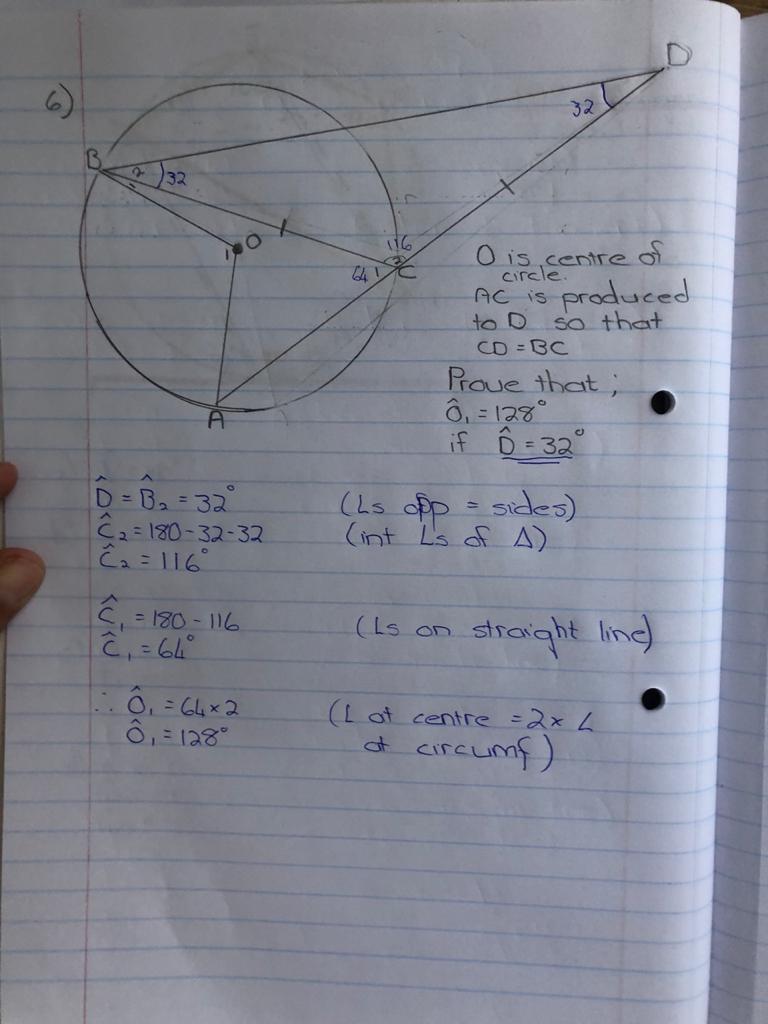 6)
D
32
B
2
32
1
O
1
116
2
64 1
C
A
O is centre of
circle.
AC is produced
to D so that
CD = BC
Prove that ;
Ô₁ = 128°
if D̂ = 32°
D̂ = B̂₂ = 32° (∠s opp = sides)
Ĉ₂ = 180 - 32 - 32 (int ∠s of Δ)
Ĉ₂ = 116°
Ĉ₁ = 180 - 116 (∠s on straight line)
Ĉ₁ = 64°
∴ Ô₁ = 64 × 2 (∠ at centre = 2 × ∠
Ô₁ = 128° at circumf)